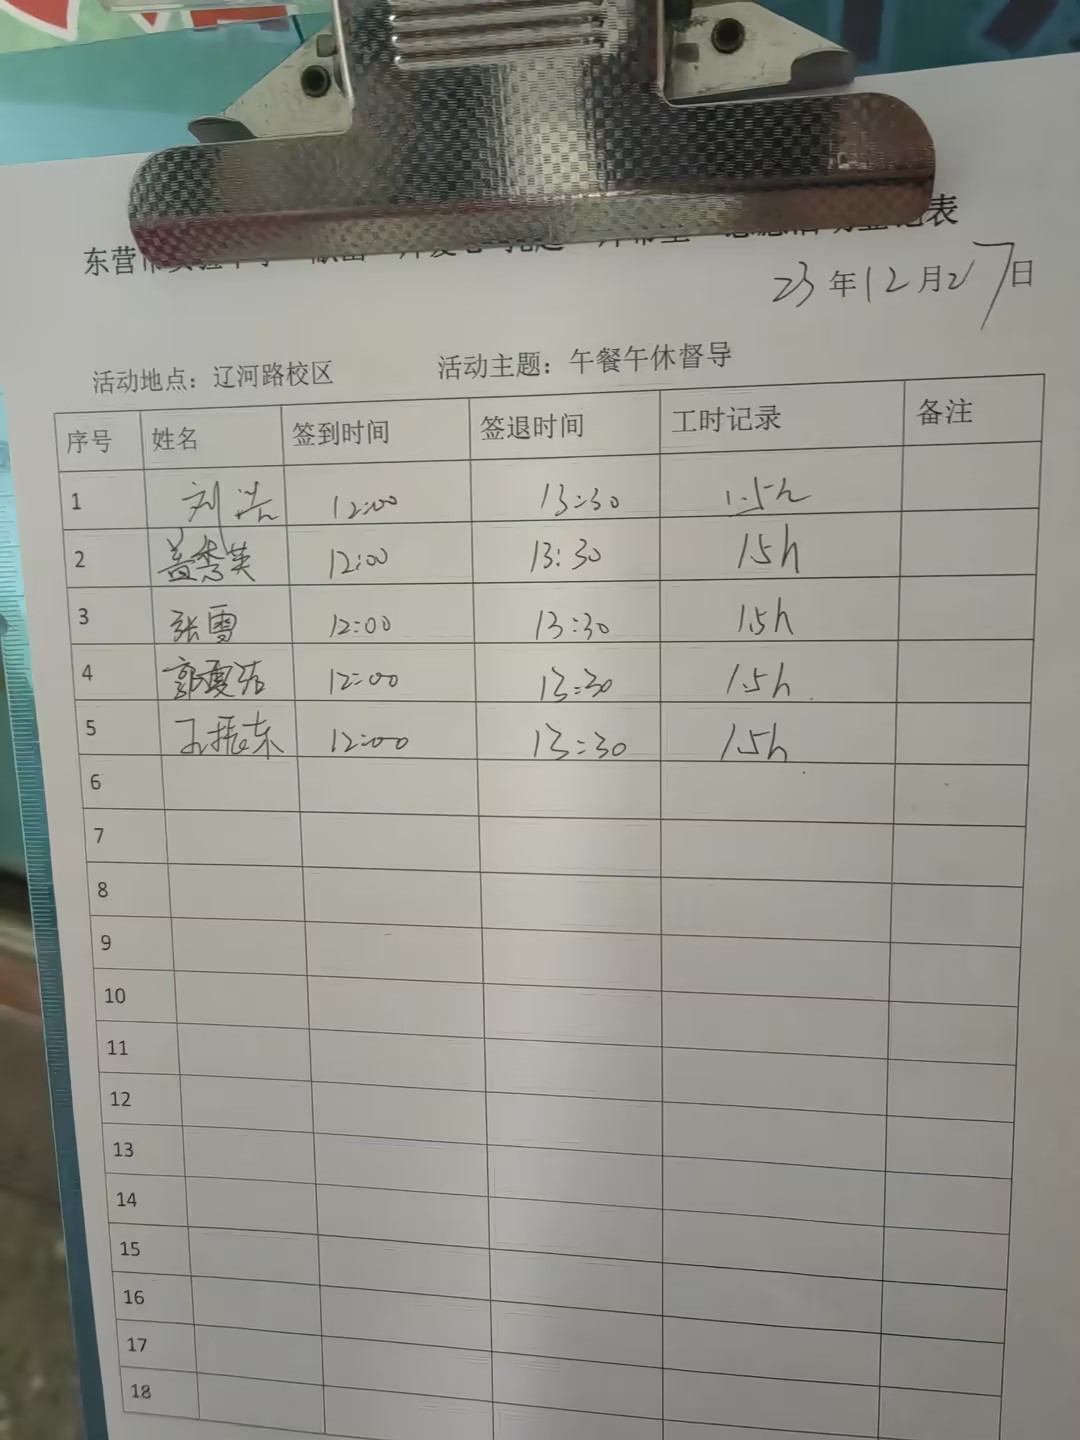 东营市
表
23年12月27日
活动地点：辽河路校区 活动主题：午餐午休督导
序号 姓名 签到时间 签退时间 工时记录 备注
1 刘浩 12:00 13:30 1.5h
2 盖秀英 12:00 13:30 1.5h
3 张雪 12:00 13:30 1.5h
4 郭夏洁 12:00 13:30 1.5h
5 王振东 12:00 13:30 1.5h
6
7
8
9
10
11
12
13
14
15
16
17
18